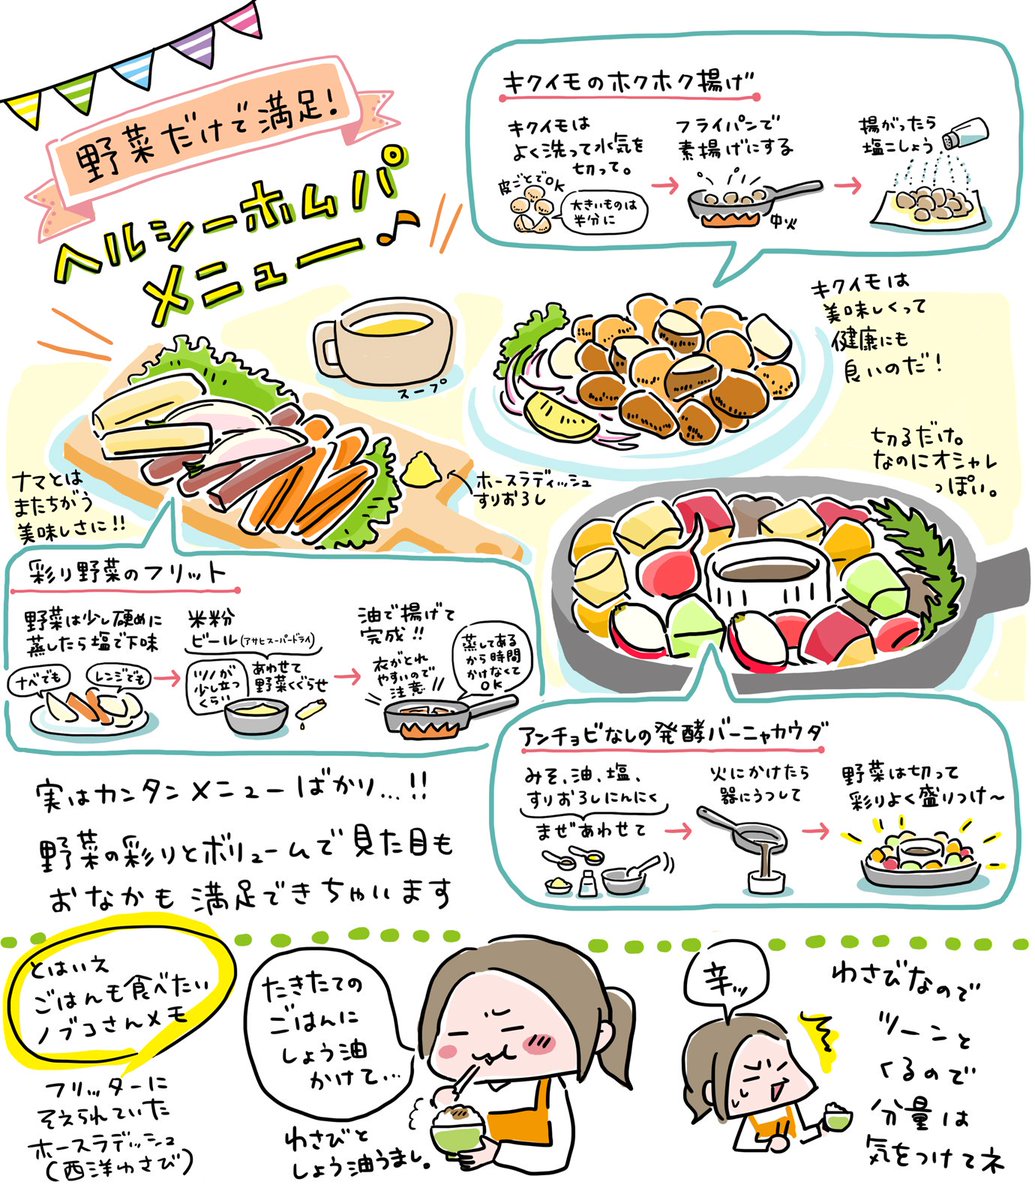 野菜だけで満足!
ヘルシーホムパ
メニュー♪
キクイモのホクホク揚げ
キクイモは
よく洗って水気を
切って。
皮ごとでOK
大きいものは
半分に
フライパンで
素揚げにする
中火
揚がったら
塩こしょう
キクイモは
美味しくって
健康にも
良いのだ!
スープ
ホースラディッシュ
すりおろし
ナマとは
またちがう
美味しさに!!
切るだけ。
なのにオシャレ
っぽい。
彩り野菜のフリット
野菜は少し硬めに
蒸したら塩で下味
ナベでも
レンジでも
米粉
ビール(アサヒスーパードライ)
ツノが
少し立つ
くらい
あわせて
野菜くぐらせ
油で揚げて
完成!!
衣がとれ
やすいので
注意!!
蒸してある
から時間
かけなくて
OK
アンチョビなしの発酵バーニャカウダ
みそ、油、塩、
すりおろしにんにく
まぜあわせて
火にかけたら
器にうつして
野菜は切って
彩りよく盛りつけ〜
実はカンタンメニューばかり…!!
野菜の彩りとボリュームで見た目も
おなかも満足できちゃいます
とはいえ
ごはんも食べたい
ノブコさんメモ
フリッターに
そえられていた
ホースラディッシュ
(西洋わさび)
たきたての
ごはんに
しょう油
かけて…
わさびと
しょう油うまし。
辛ッ
わさびなので
ツーンと
くるので
分量は
気をつけてネ